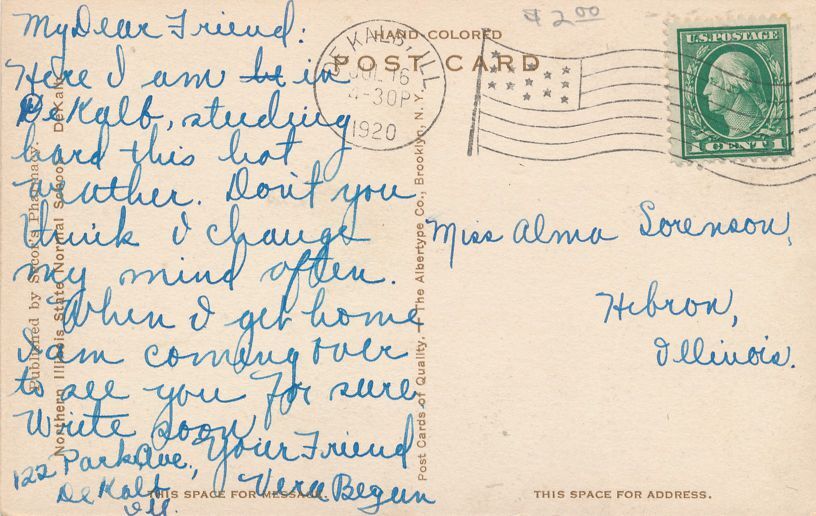 My Dear Friend:
Here I am in
DeKalb, studing
hard this hot
weather. Don't you
think I change
my mind often.
When I get home
I am coming over
to see you for sure.
Write soon
Your Friend
Vera Begun
122 Park Ave.,
DeKalb
Ill.
$2.00
HAND-COLORED
POST CARD
DE KALB, ILL
JUL 16
4-30P
1920
U.S. POSTAGE
1 CENT 1
Miss Alma Sorenson,
Hebron,
Illinois.
Published by Secor's Pharmacy.
Northern Illinois State Normal School, DeKalb
Post Cards of Quality. — The Albertype Co., Brooklyn, N.Y.
THIS SPACE FOR MESSAGE.
THIS SPACE FOR ADDRESS.